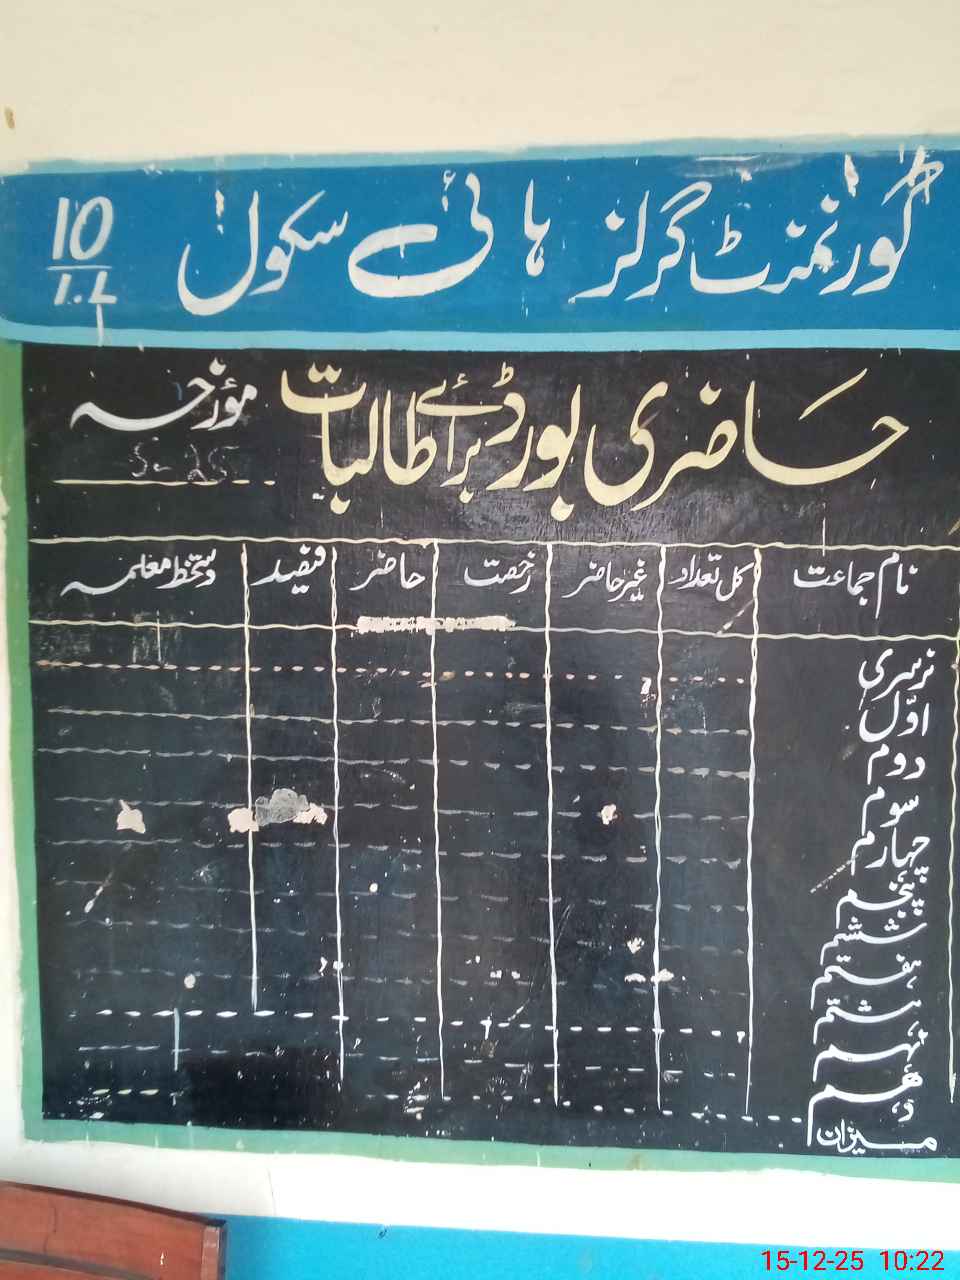 گورنمنٹ گرلز ہائی سکول 10/1.L
حاضری بورڈ برائے طالبات مؤرخہ
نام جماعت کل تعداد غیر حاضر رخصت حاضر فیصد دستخط معلمہ
نرسری
اوّل
دوم
سوم
چہارم
پنجم
ششم
ہفتم
ہشتم
نہم
دہم
میزان
15-12-25 10:22